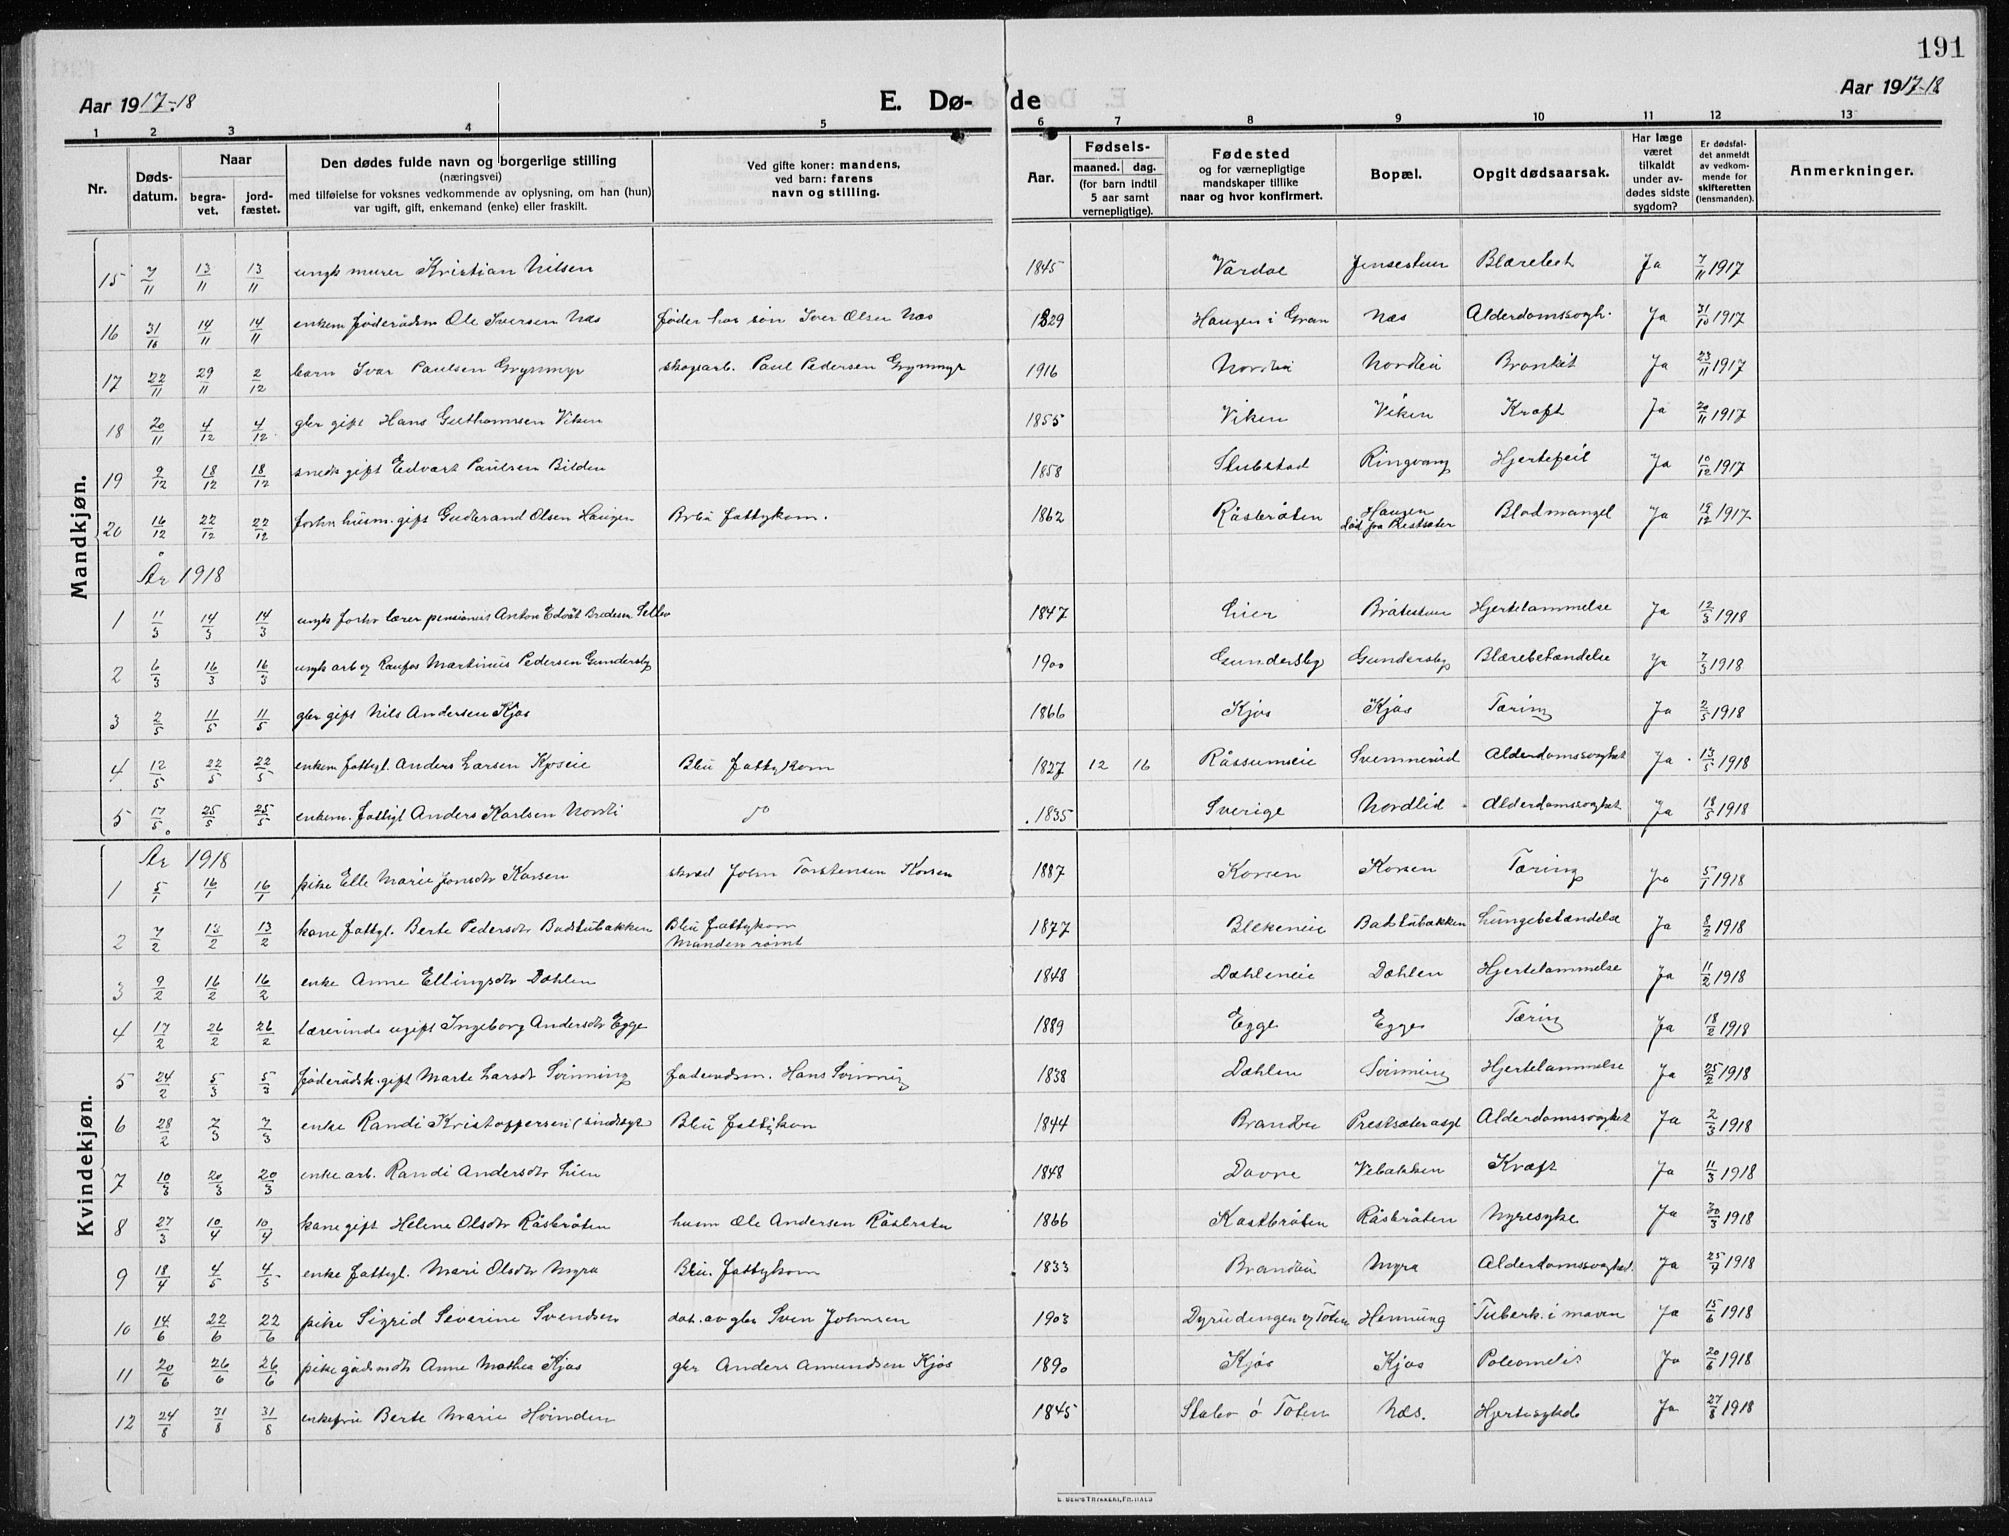 191
Aar 1917-18
E. Dø- de
Aar 1917-18
1 2 3 4 5 6 7 8 9 10 11 12 13
Nr.
Dødsdatum.
Naar
begravet.
jordfæstet.
Den dødes fulde navn og borgerlige stilling
(næringsvei)
med tilføielse for voksnes vedkommende av oplysning, om han (hun)
var ugift, gift, enkemand (enke) eller fraskilt.
Ved gifte koner: mandens,
ved barn: farens
navn og stilling.
Aar.
Fødsels-
maaned. dag.
(for barn indtil
5 aar samt
vernepligtige).
Fødested
og for værnepligtige
mandskaper tillike
naar og hvor konfirmert.
Bopæl.
Opgit dødsaarsak.
Har læge
været
tilkaldt
under av-
dødes sidste
sygdom?
Er dødsfal-
det anmeldt
av vedkom-
mende for
skifteretten
(lensmanden).
Anmerkninger.
Mandkjøn.
15 7/11 13/11 13/11 ungk murer Kristian Nilsen 1845 Vardal Jensestuen Blærelest Ja 7/11 1917
16 31/10 14/11 14/11 enkem føderådsm Ole Iversen Næs føder hos søn Iver Olsen Næs 1829 Haugen i Gran Næs Alderdomssvagh. Ja 31/10 1917
17 22/11 29/11 2/12 barn Ivar Paulsen Grynmyr skogsarb. Paul Pedersen Grynmyr 1916 Nordlii Nordlii Bronkit Ja 23/11 1917
18 20/11 4/12 4/12 gbr gift Hans Gulthormsen Viken 1855 Viken Viken Kræft Ja 20/11 1917
19 9/12 18/12 18/12 snedk gift Edvart Paulsen Bilden 1858 Stubstad Ringvang Hjertefeil Ja 10/12 1917
20 16/12 22/12 22/12 forhv husm. gift Gudbrand Olsen Haugen Brbu fattigkom. 1862 Råsbråten Haugen død fra Prestsæter Blodmangel Ja 19/12 1917
År 1918
1 11/3 14/3 14/3 ungk forhv lærer pensionist Anton Edvart Bredesen 1847 Lier Bråtestuen Hjertelammelse Ja 12/3 1918
2 6/3 16/3 16/3 ungk arb og Raufos Martinius Pedersen Gundersby 1900 Gundersby Gundersby Blærebetændelse Ja 7/3 1918
3 2/5 11/5 11/5 gbr gift Nils Andersen Kjos 1866 Kjos Kjos Tæring Ja 2/5 1918
4 12/5 22/5 22/5 enkem fattigl. Anders Larsen Kjoseie Blu fattigkom 1827 12 16 Råssumeie Svennerud Alderdomssvaghet Ja 13/5 1918
5 17/5 25/5 25/5 enkem. fattigl Anders Karlsen Nordli do 1835 Sverige Nordlid Alderdomssvaghet Ja 18/5 1918
Kvindekjøn.
År 1918
1 5/1 16/1 16/1 pike Elle Marie Jonsdtr Korsen skræd John Torstensen Korsen 1887 Korsen Korsen Tæring Ja 5/1 1918
2 7/2 13/2 13/2 kone fattigl. Berte Pedersdtr Badstubakken Blu fattigkom Manden rømt 1877 Blekeneie Badstubakken Lungebetændelse Ja 8/2 1918
3 9/2 16/2 16/2 enke Anne Ellingsdtr Dæhlen 1848 Dæhleneie Dæhlen Hjertelammelse Ja 11/2 1918
4 17/2 26/2 26/2 lærerinde ugift Ingeborg Andersdtr Egge 1889 Egge Egge Tæring Ja 18/2 1918
5 24/2 5/3 5/3 føderådsk. gift Marte Larsdtr Svinning føderådsm. Hans Svinning 1838 Dæhlen Svinning Hjertelammelse Ja 25/2 1918
6 28/2 7/3 7/3 enke Randi Kristoffersen (sindssyk) Blu fattigkom 1844 Brandbu Prestsæter asyl Alderdomssvaghet Ja 2/3 1918
7 10/3 20/3 20/3 enke arb. Randi Andersdtr Lien 1848 Dovre Vebakken Kræft Ja 11/3 1918
8 27/3 10/4 10/4 kone gift Helene Olsdtr Råsbråten husm Ole Andersen Råsbråten 1866 Kastbråten Råsbråten Nyresyke Ja 30/3 1918
9 18/4 4/5 4/5 enke fattigl. Mari Olsdtr Myra Blu. fattigkom 1833 Brandbu Myra Alderdomssvaghed. Ja 25/4 1918
10 14/6 22/6 22/6 pike Sigrid Severine Svendsen dat. av gbr Sven Johnsen 1903 Dyrudengen V Toten Hennung Tuberk. i maven Ja 15/6 1918
11 20/6 26/6 26/6 pike gårdmdtr Anne Mathea Kjos gbr Anders Amundsen Kjos 1890 Kjos Kjos Ja 20/6 1918
12 24/8 31/8 31/8 enkefru Berte Marie Hvinden 1845 ø Toten Næs. Hjertesykd Ja 27/8 1918